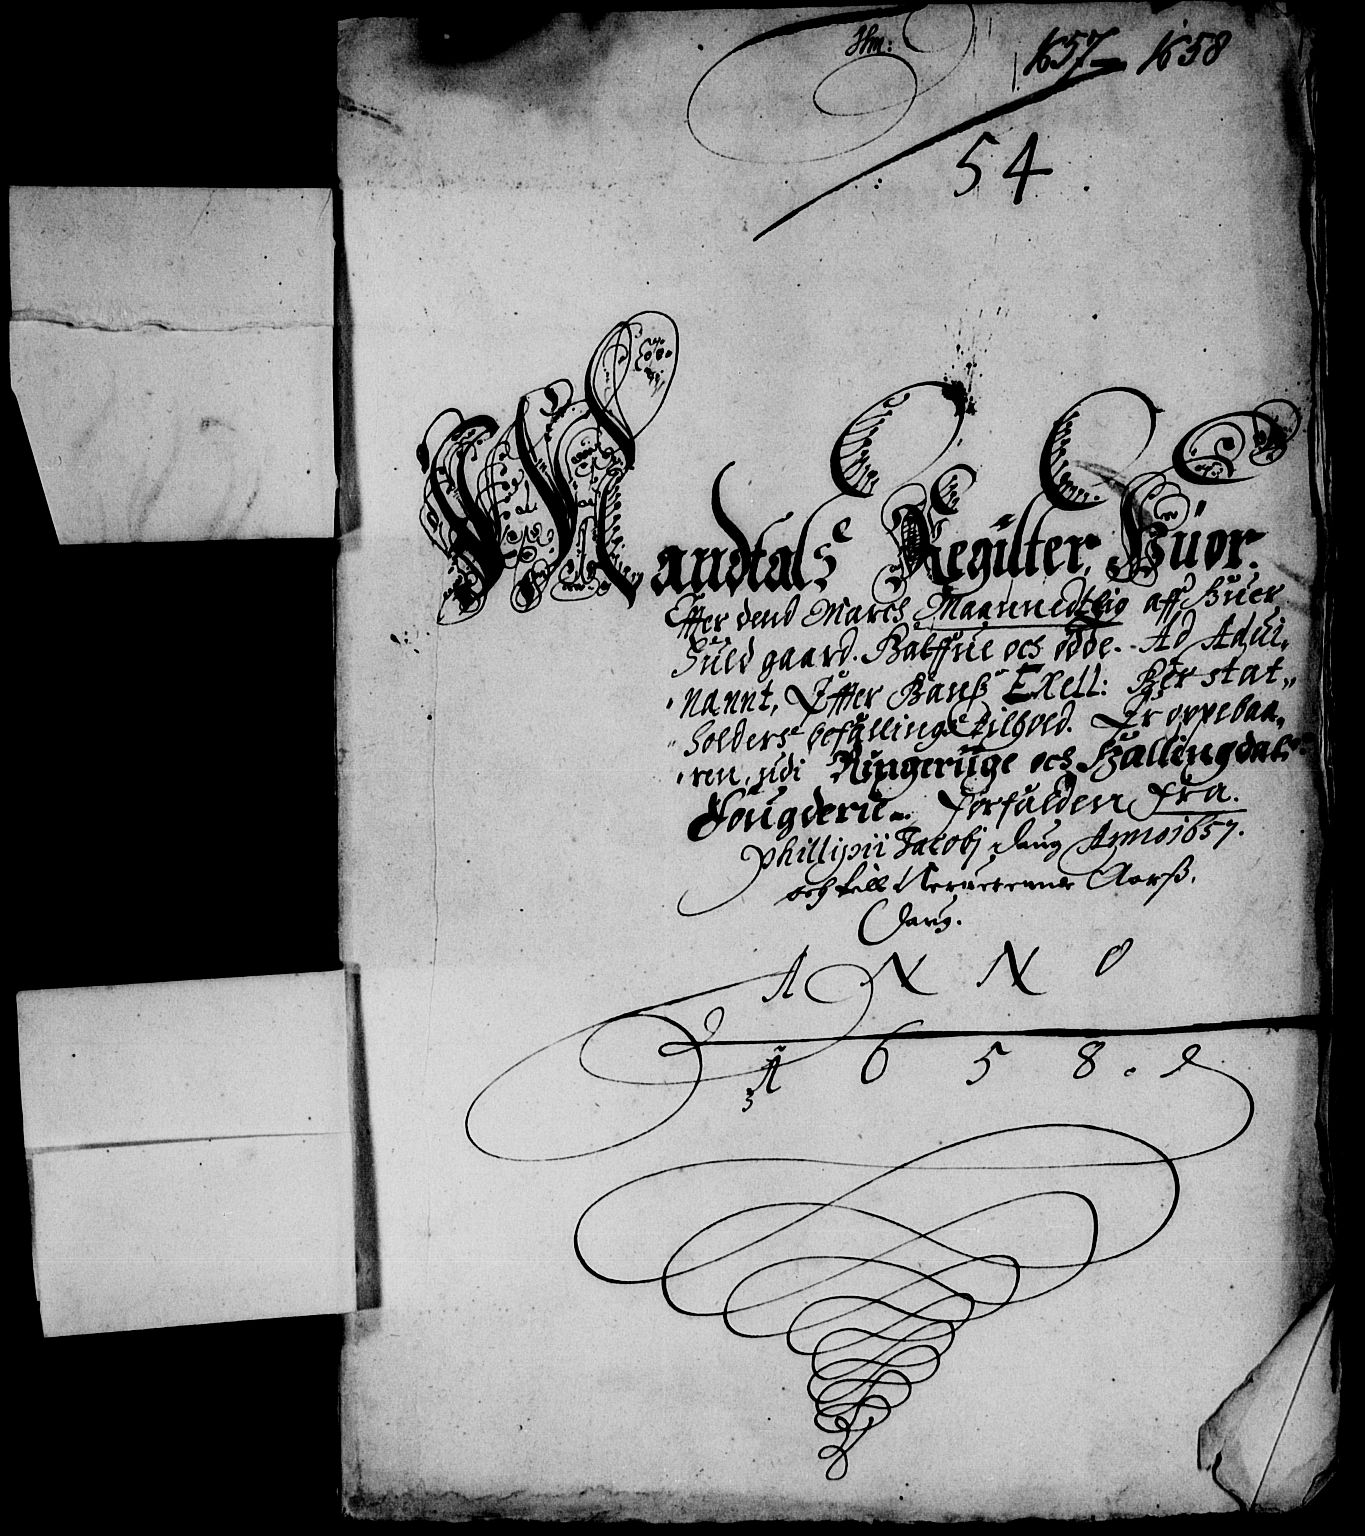 Hm:
1657 – 1658
54.
Mandtals Register, Huor.
Effter dend March Maannedtlig aff Huer
Fuld gaard. Halffue och ødde. Ad Adui,
nannt, Effter Hanß Exell: Her stat,,
holders befallings tilhold. Er oppebaa,
ren, udi Ringeriige och Hallingdals
Fougderii. Forfalden fra.
Phillipii Jacobj daug Anno 1657.
och till Aarß,
Daug.
ANNO
1658.
3